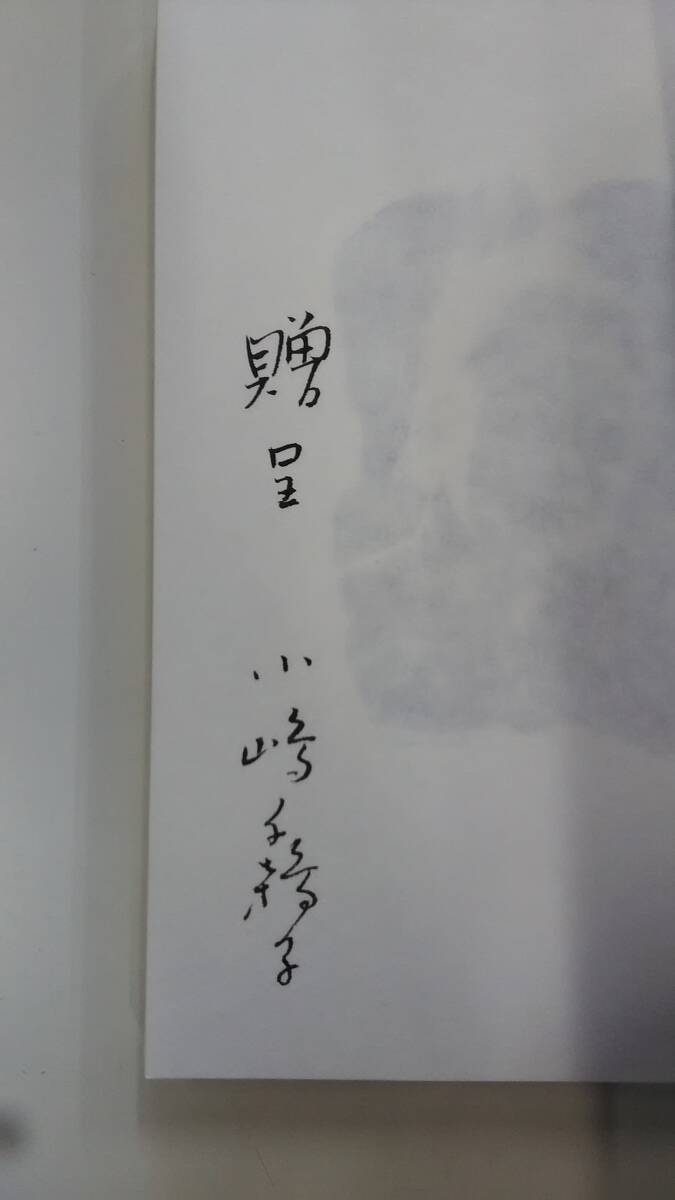 贈呈 小嶋千鶴子